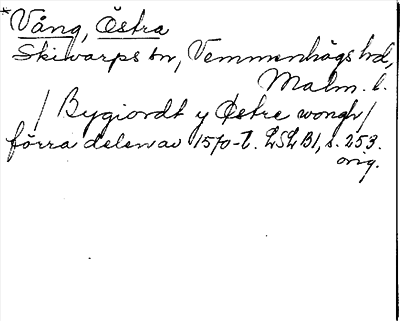 *Vång, Östra
Skivarps sn, Vemmenhögs hd,
Malm. l.
/ Bygiordt y Østre wongh /
förra delen av 1570-t. LSLB1, s. 253.
orig.